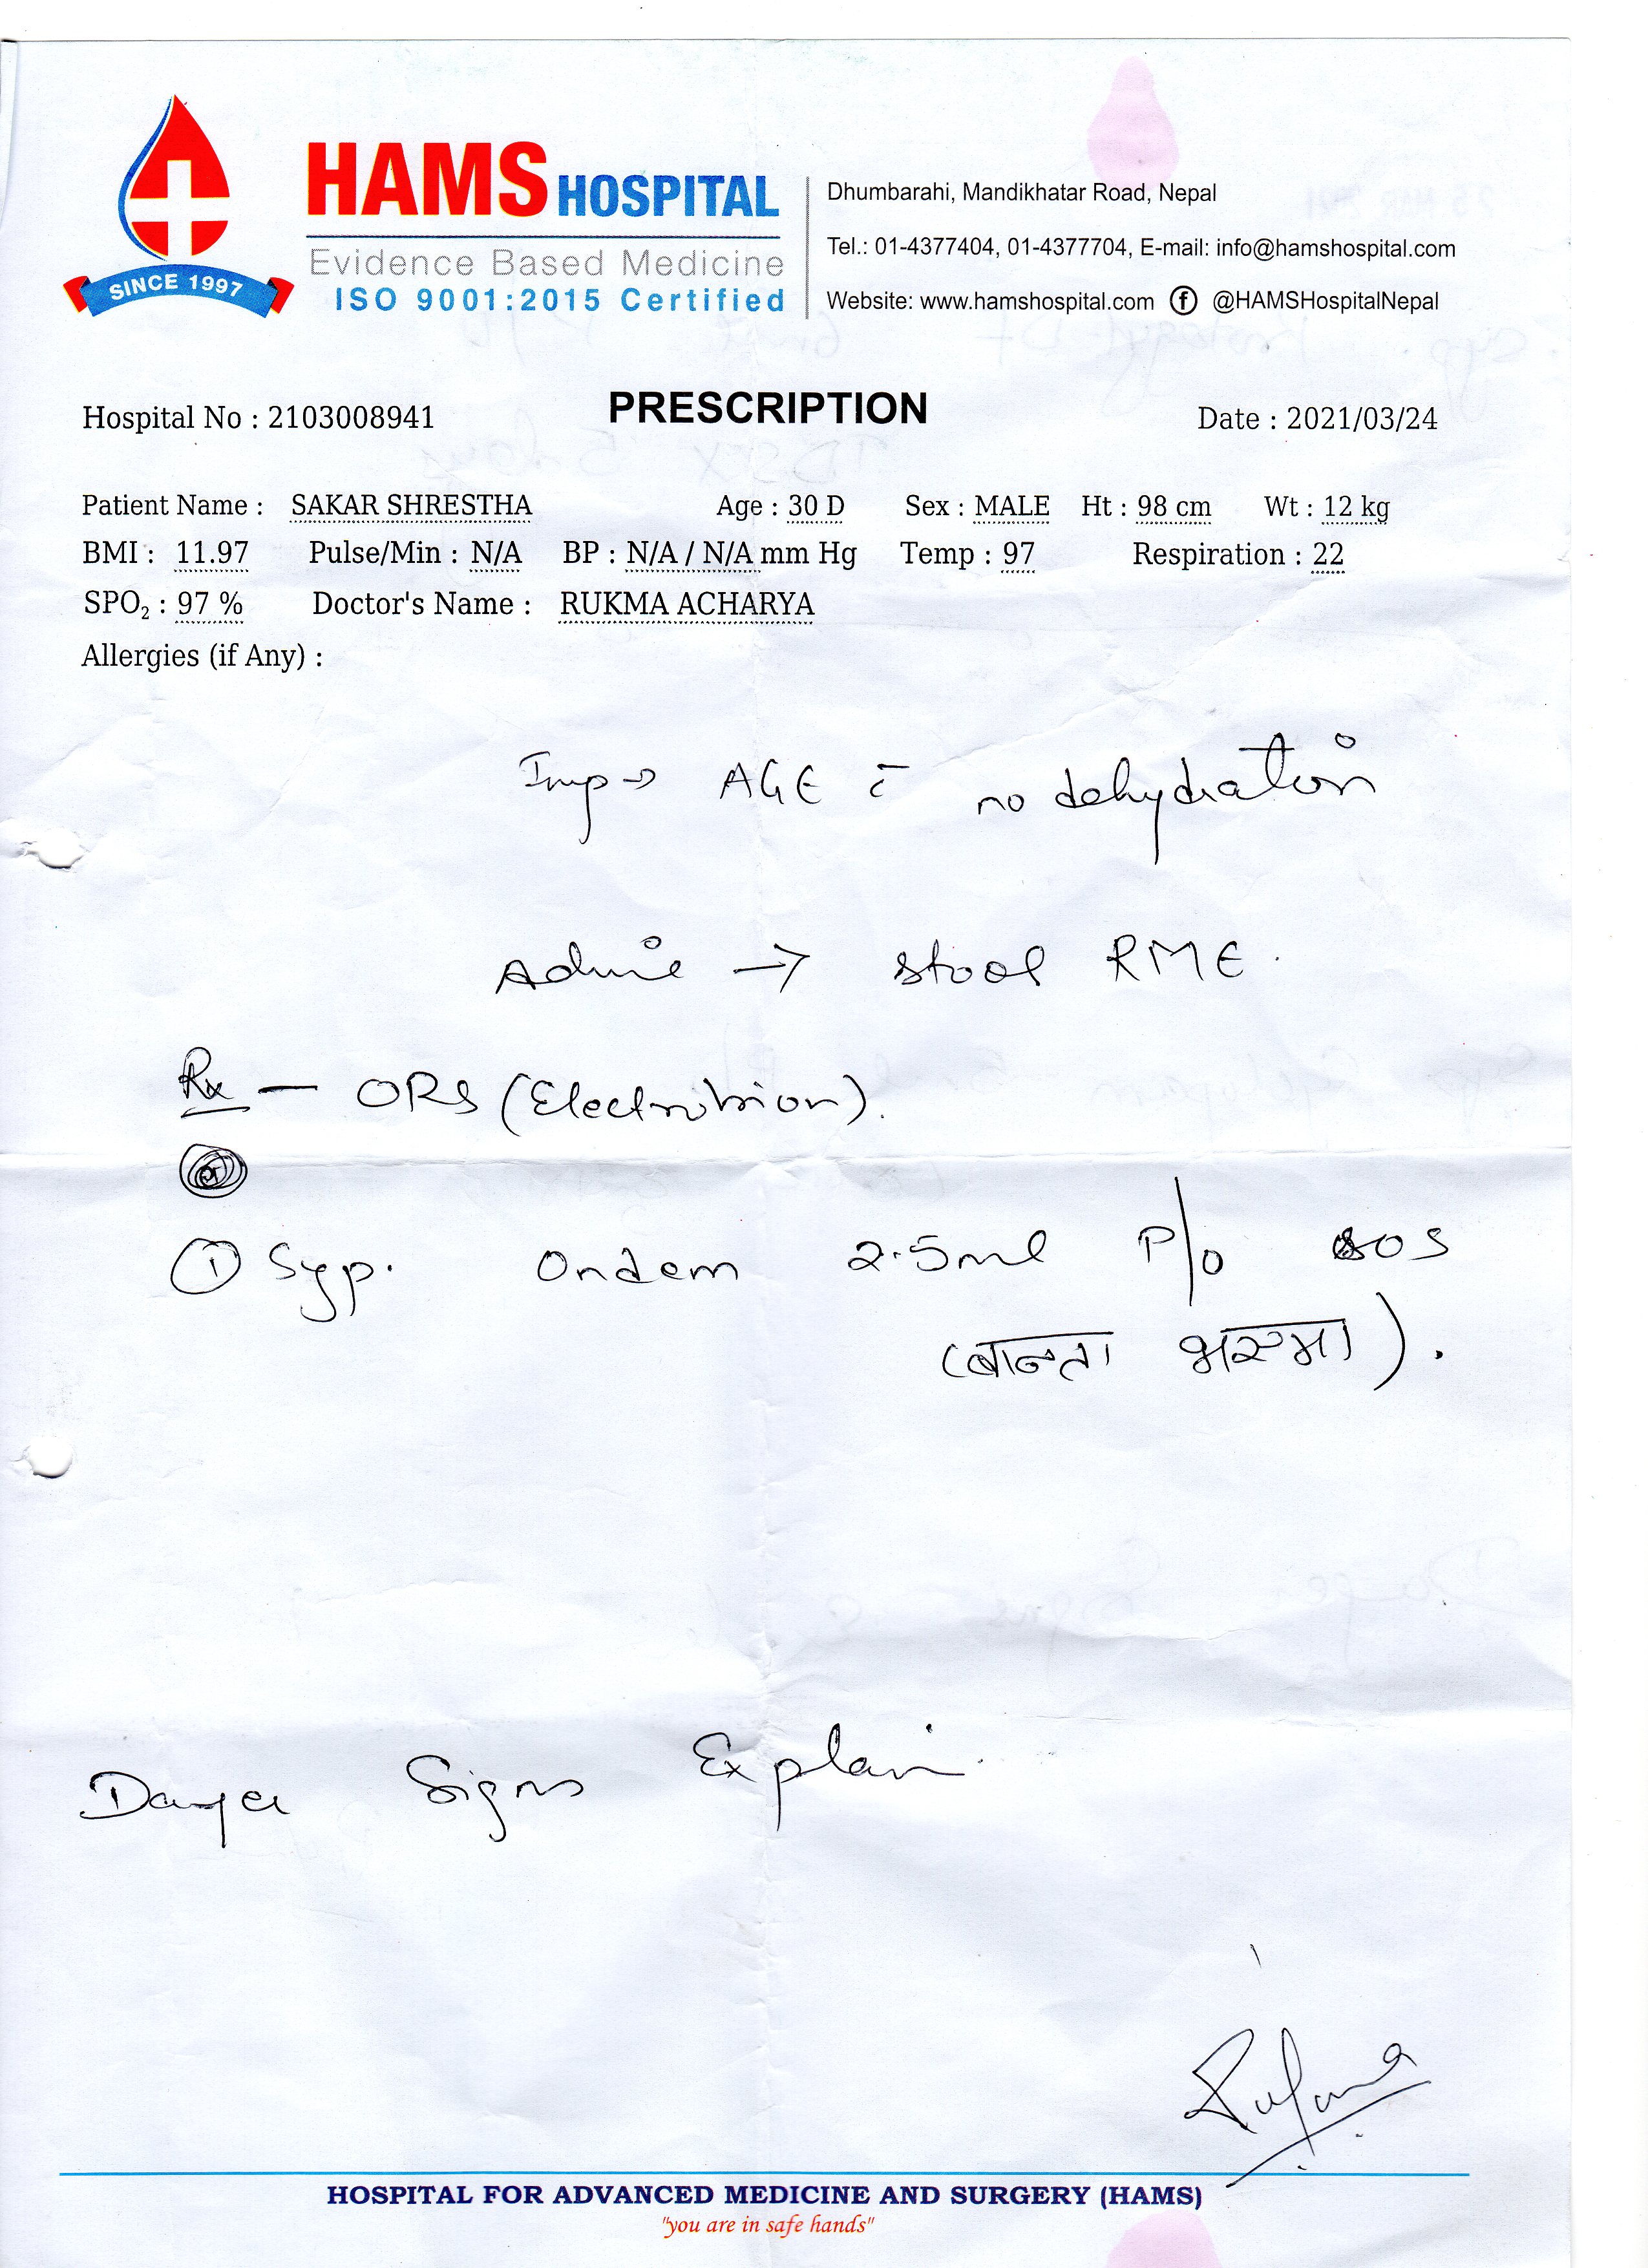 HAMS HOSPITAL
Evidence Based Medicine
ISO 9001:2015 Certified
SINCE 1997
Dhumbarahi, Mandikhatar Road, Nepal
Tel.: 01-4377404, 01-4377704, E-mail: info@hamshospital.com
Website: www.hamshospital.com @HAMSHospitalNepal
Hospital No : 2103008941 PRESCRIPTION Date : 2021/03/24
Patient Name : SAKAR SHRESTHA Age : 30 D Sex : MALE Ht : 98 cm Wt : 12 kg
BMI : 11.97 Pulse/Min : N/A BP : N/A / N/A mm Hg Temp : 97 Respiration : 22
SPO₂ : 97 % Doctor's Name : RUKMA ACHARYA
Allergies (if Any) :
Imp → AGE c̄ no dehydration
Advice → stool RME.
Rx — ORS (Electrobion).
① Syp. Ondem 2.5ml P/O SOS
(बान्ता भएमा).
Danger Signs Explain
HOSPITAL FOR ADVANCED MEDICINE AND SURGERY (HAMS)
"you are in safe hands"